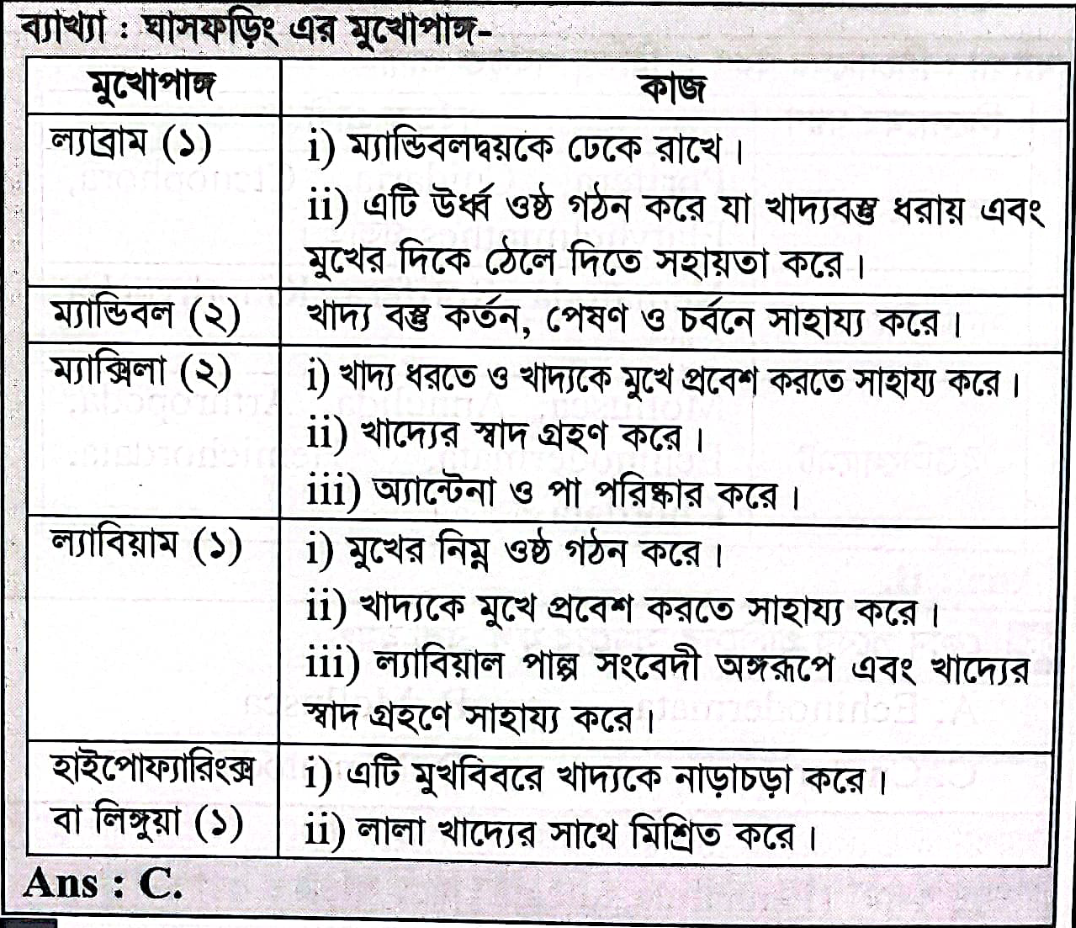 ব্যাখ্যা : ঘাসফড়িং এর মুখোপাঙ্গ-
মুখোপাঙ্গ কাজ
ল্যাব্রাম (১) i) ম্যান্ডিবলদ্বয়কে ঢেকে রাখে।
ii) এটি উর্ধ্ব ওষ্ঠ গঠন করে যা খাদ্যবস্তু ধরায় এবং
মুখের দিকে ঠেলে দিতে সহায়তা করে।
ম্যান্ডিবল (২) খাদ্য বস্তু কর্তন, পেষণ ও চর্বনে সাহায্য করে।
ম্যাক্সিলা (২) i) খাদ্য ধরতে ও খাদ্যকে মুখে প্রবেশ করতে সাহায্য করে।
ii) খাদ্যের স্বাদ গ্রহণ করে।
iii) অ্যান্টেনা ও পা পরিষ্কার করে।
ল্যাবিয়াম (১) i) মুখের নিম্ন ওষ্ঠ গঠন করে।
ii) খাদ্যকে মুখে প্রবেশ করতে সাহায্য করে।
iii) ল্যাবিয়াল পাল্প সংবেদী অঙ্গরূপে এবং খাদ্যের
স্বাদ গ্রহণে সাহায্য করে।
হাইপোফ্যারিংক্স i) এটি মুখবিবরে খাদ্যকে নাড়াচড়া করে।
বা লিঙ্গুয়া (১) ii) লালা খাদ্যের সাথে মিশ্রিত করে।
Ans : C.